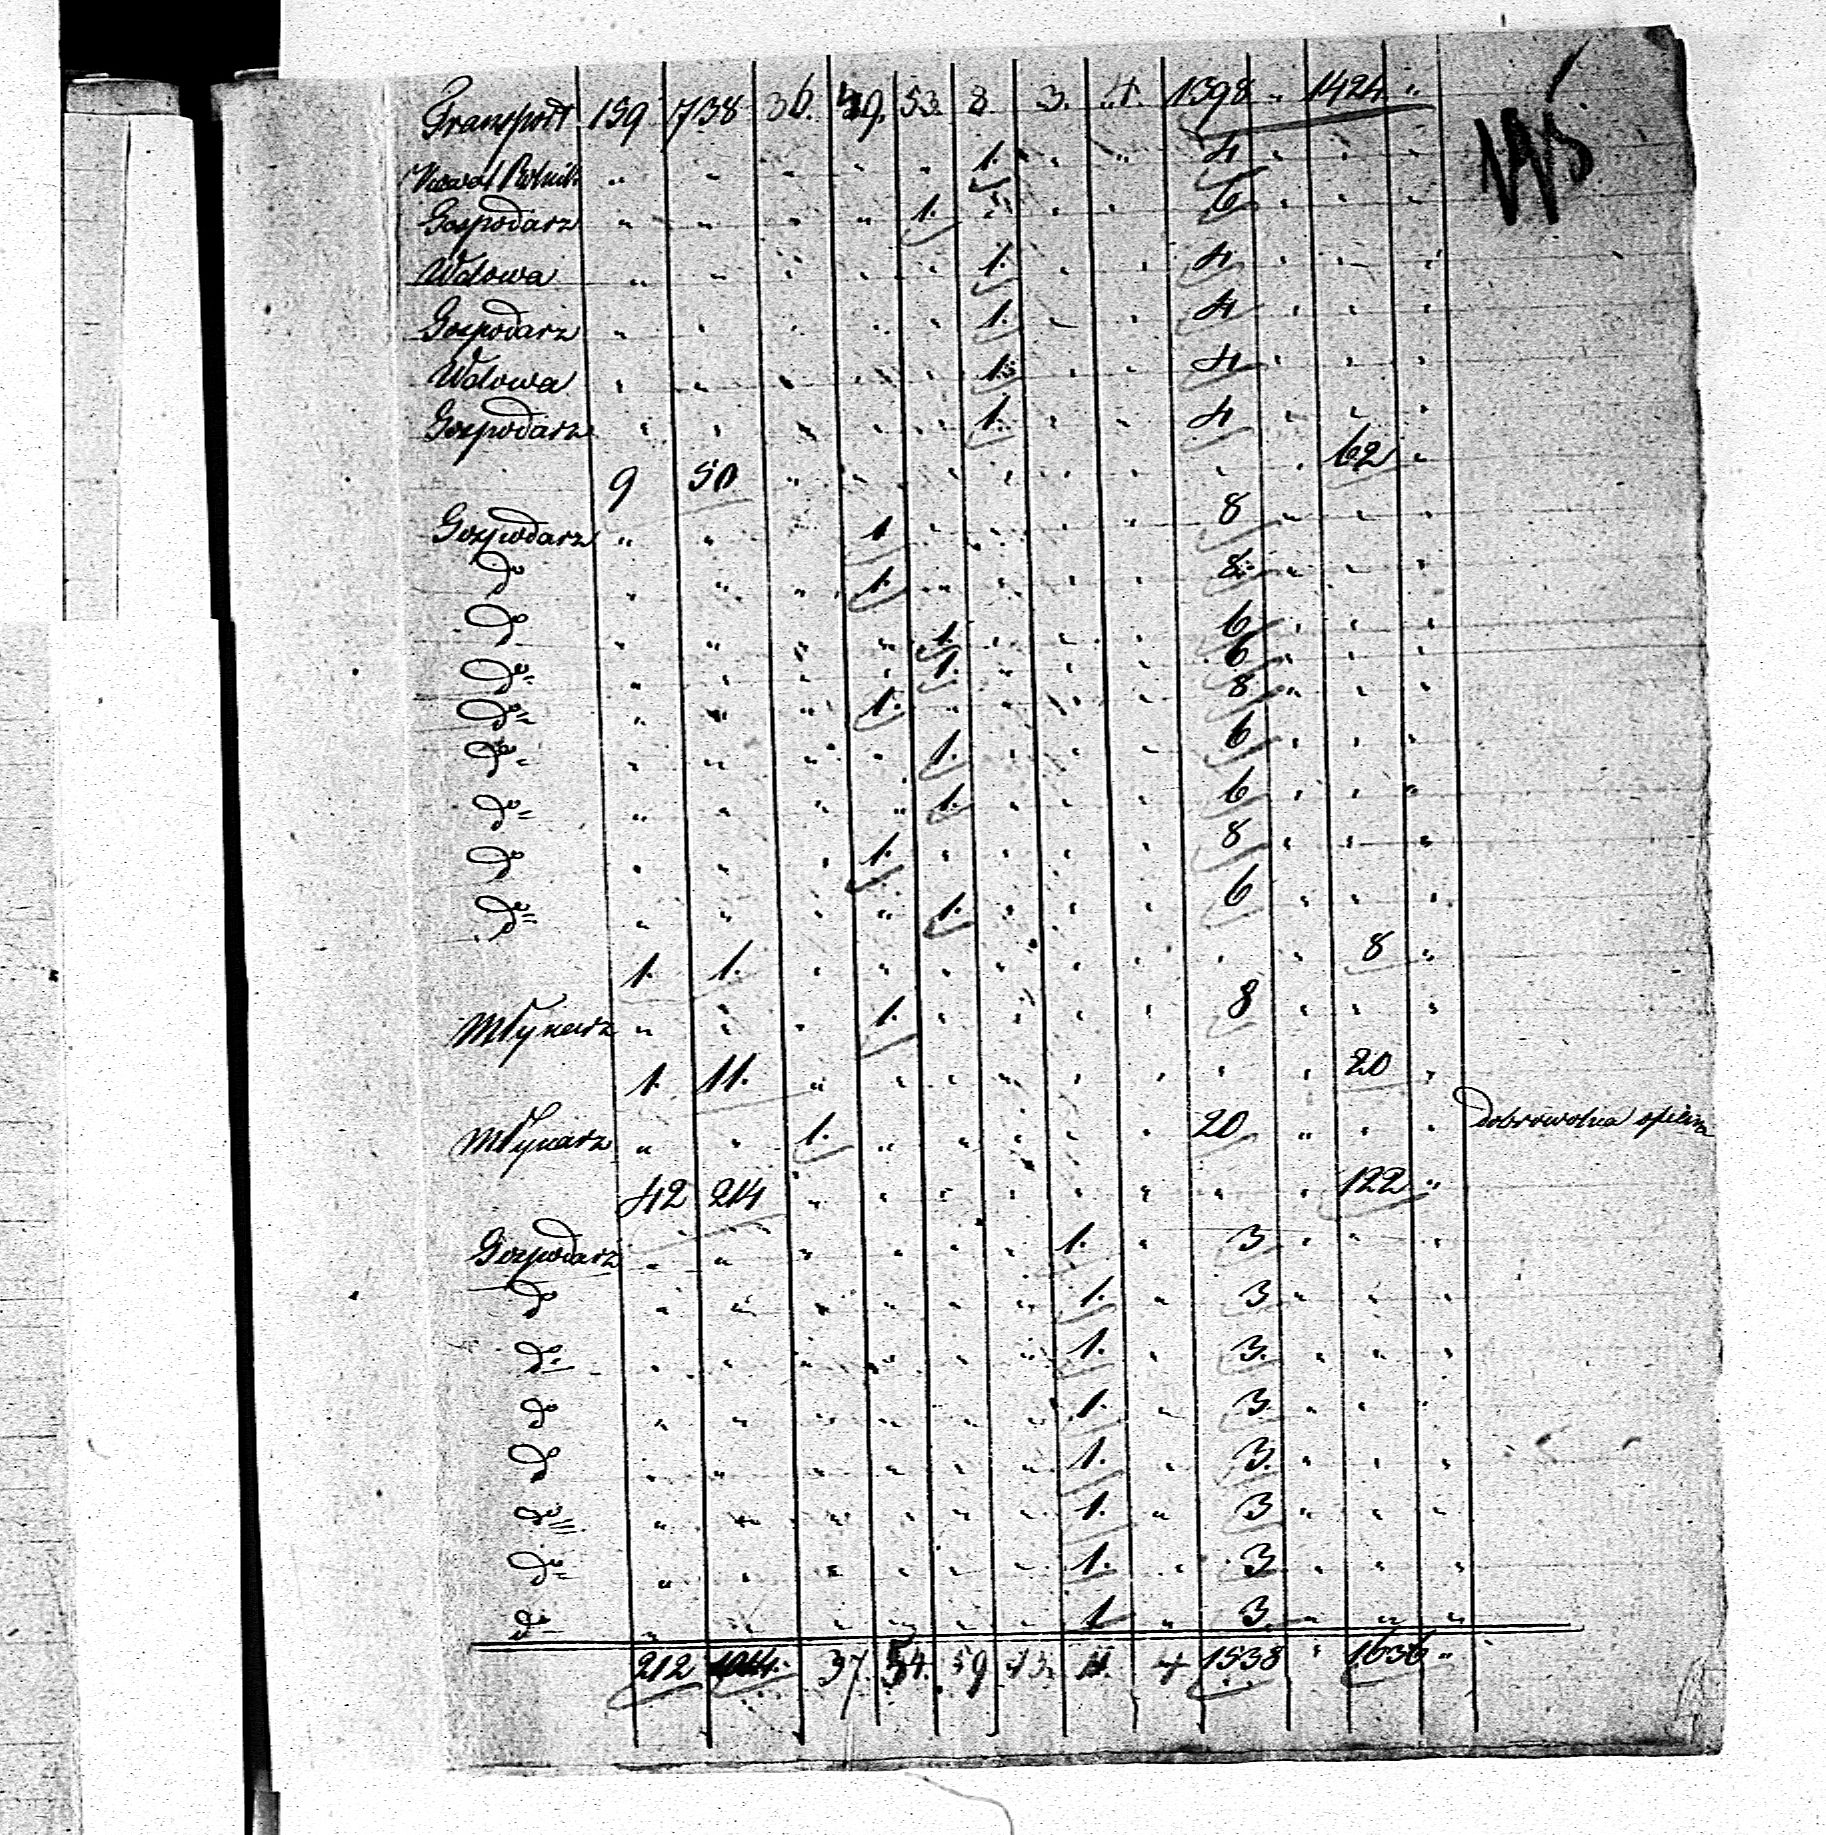 Transport 159 738 36. 49. 53. 8 3. 4. 1398 " 1424 "
195
" " " " " 1. " " 4 " " "
Gospodarz " " " " 1. " " " 6 " " "
Wdowa " " " " " 1. " " 4 " " "
Gospodarz " " " " " 1. " " 4 " " "
Wdowa " " " " " 1. " " 4 " " "
Gospodarz " " " " " 1. " " 4 " " "
9 50 " " " " " " " " 62 "
Gospodarz " " " 1 " " " " 8 " " "
do " " " 1. " " " " 8 " " "
do " " " " 1. " " " 6 " " "
do " " " " 1. " " " 6 " " "
do " " " 1. " " " " 8 " " "
do " " " " 1. " " " 6 " " "
do " " " " 1. " " " 6 " " "
do " " " 1. " " " " 8 " " "
do " " " " 1. " " " 6 " " "
1. 1. " " " " " " " " 8 "
Młynarz " " " 1. " " " " 8 " " "
1. 11. " " " " " " " " 20 "
Młynarz " " 1. " " " " " 20 " " " dobrowolna
42 214 " " " " " " " " 122 "
Gospodarz " " " " " " 1. " 3 " " "
do " " " " " " 1. " 3 " " "
do " " " " " " 1. " 3. " " "
do " " " " " " 1. " 3. " " "
do " " " " " " 1. " 3. " " "
do " " " " " " 1. " 3 " " "
do " " " " " " 1. " 3 " " "
do " " " " " " 1 " 3 " " "
212 1014. 37. 54. 59 13. 11. 4 1538 " 1636 "